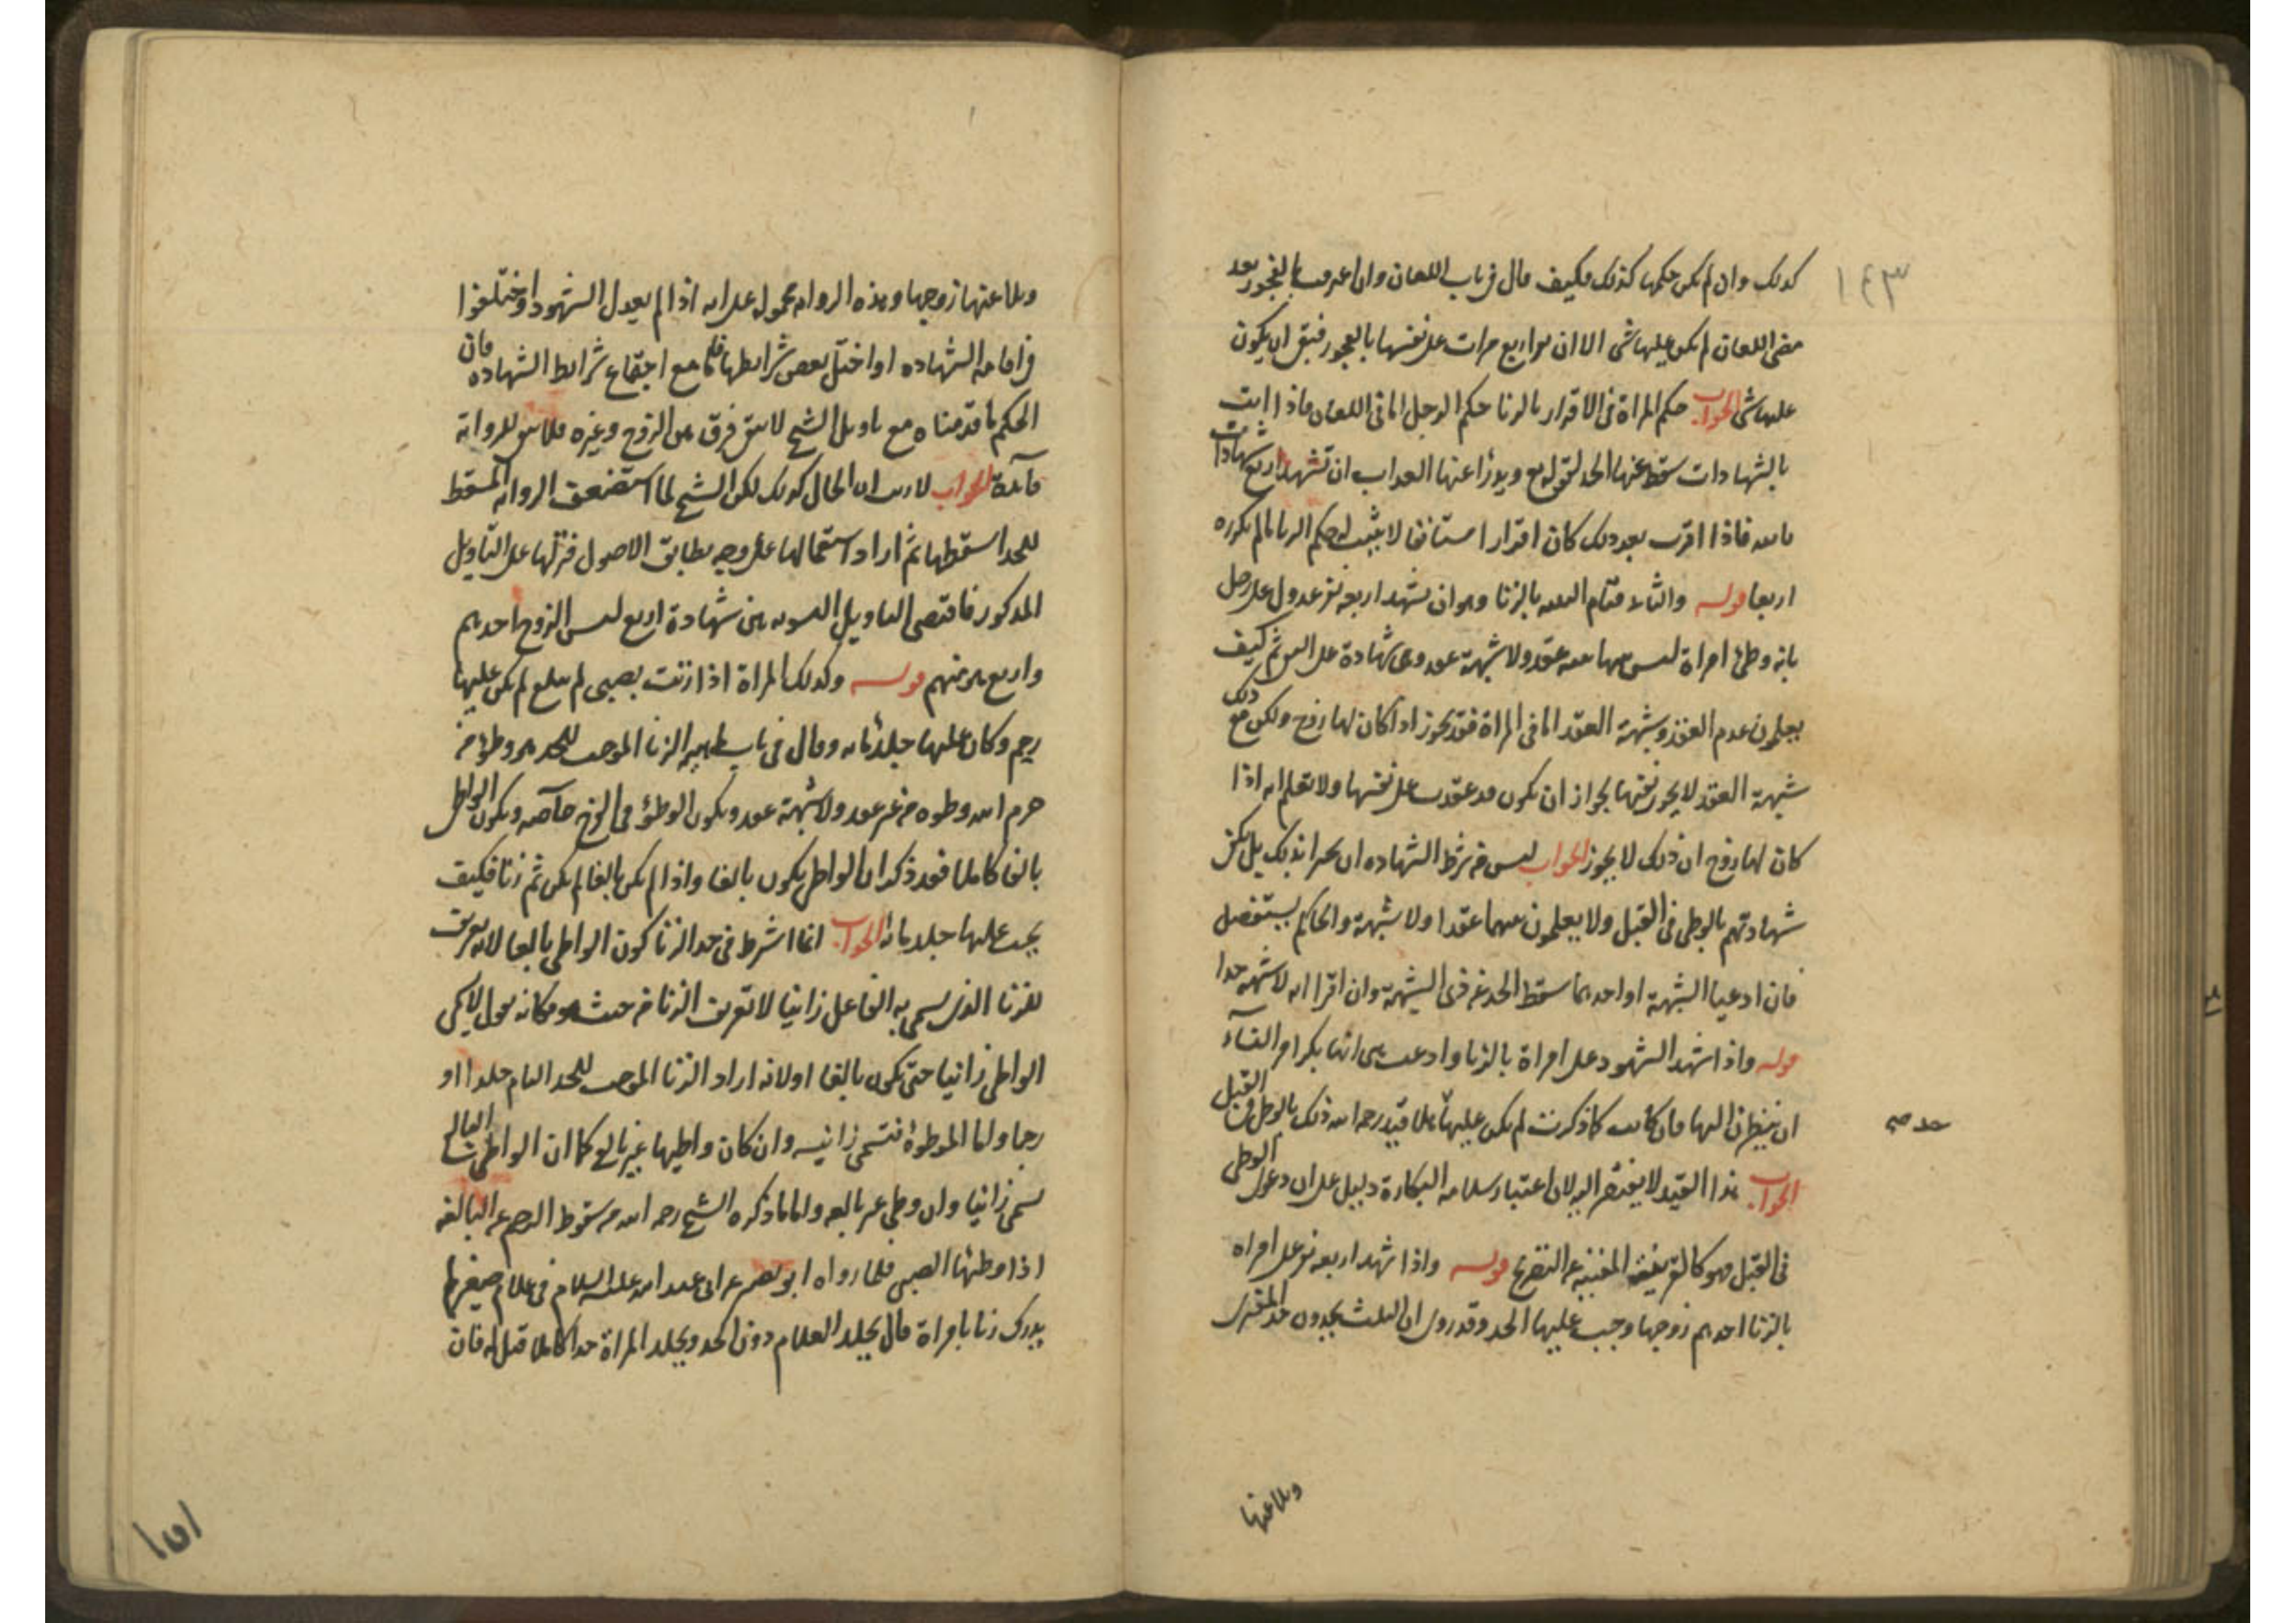 ١٤٣
كذلك وان لم يكن حكمها كذلك فكيف قال في باب اللعان وان اعترفت بالفجور بعد
مضى اللعان لم يكن عليها شى الا ان تقر اربع مرات على نفسها بالفجور فينبغي ان يكون
عليها شى الجواب حكم المراة في الاقرار بالزنا حكم الرجل اما في اللعان فاذا اتت
بالشهادات سقط عنها الحد لقوله تع ويدرؤا عنها العذاب ان تشهد اربع شهادات
بالله فاذا اقرت بعد ذلك كان اقرارا مستانفا لا يثبت له حكم الزنا ما لم تكرره
اربعا قوله والثاني قيام البينه بالزنا وهو ان يشهد اربعه نفر عدول على رجل
بانه وطئ امراة ليس بينها وبينه عقد ولا شبهة عقد وهى شهادة على النفي ثم كيف
يعلمون عدم العقد وشبهة العقد اما في المراة فقد يجوز اذا كان لها زوج ولكن مع ذلك
شبهة العقد لا يجوز نفيها لجواز ان تكون قد عقدت على نفسها ولا تعلم انه اذا
كان لها زوج ان ذلك لا يجوز الجواب ليس من شرط الشهاده ان يخبرا بذلك بل يكفي
شهادتهم بالوطى في القبل ولا يعلمون بينهما عقدا ولا شبهة والحاكم يستفصل
فان ادعيا الشبهة او احدهما سقط الحد عن مدعى الشبهة وان اقرا انه لا شبهه حدا
قوله واذا شهد الشهود على امراة بالزنا وادعت هى انها بكر امر النساء
ان ينظرن اليها فان كانت كما ذكرت لم يكن عليها حد هلا قيد رحمه الله ذلك بالوطى في القبل
الجواب هذا القيد لا يفتقر اليه لان اعتبار سلامه البكارة دليل على ان دعوى الوطى
في القبل فهو كالقرينة المغنية عن التصريح قوله واذا شهد اربعه نفر على امراه
بالزنا احدهم زوجها وجب عليها الحد وقد روى ان الثلث يجلدون حد المفترى
حد صح
ويلاعنها
ويلاعنها زوجها وهذه الروايه محموله على انه اذا لم يعدل الشهود او اختلفوا
في اقامه الشهاده او اختل بعض شرايطها فاما مع اجتماع شرايط الشهاده فان
الحكم ما قدمناه مع تاويل الشيخ لا يبقى فرق بين الزوج وغيره فلا يبقى للرواية
فائدة الجواب لا ريب ان الحال كذلك لكن الشيخ لما استضعف الروايه المسقطه
للحد اسقطها ثم اراد استعمالها على وجه يطابق الاصول فنزلها على التاويل
المذكور فاقتضى التاويل التسويه بين شهادة اربع ليس الزوج احدهم
واربع هو منهم قوله وكذلك المراة اذا زنت بصبى لم يبلغ لم يكن عليها
رجم وكان عليها جلد مائه وقال في باب ماهيه الزنا الموجب للحد هو وطؤ من
حرم الله وطؤه من غير عقد ولا شبهة عقد ويكون الوطؤ في الفرج خاصه ويكون الواطى
بالغا كاملا فقد ذكر ان الواطى يكون بالغا واذا لم يكن بالغا لم يكن ثم زنا فكيف
يجب عليها جلد مائه الجواب انما اشترط في حد الزنا كون الواطى بالغا لانه تعريف
للزنا الذى يسمى به الفاعل زانيا لا تعريف الزنا من حيث هو فكانه يقول لا يسمى
الواطى زانيا حتى يكون بالغا او لانه اراد الزنا الموجب للحد التام جلدا او
رجما واما الموطوة فتسمى زانيه وان كان واطيها غير بالغ كما ان الواطى البالغ
يسمى زانيا وان وطى غير بالغه واما ما ذكره الشيخ رحمه الله من سقوط الرجم عن البالغه
اذا وطئها الصبى فلما رواه ابو بصير عن ابى عبد الله عليه السلام في غلام صغير لم
يدرك زنا بامراة قال يجلد الغلام دون الحد ويجلد المراة حدا كاملا قيل له فان
١٥١